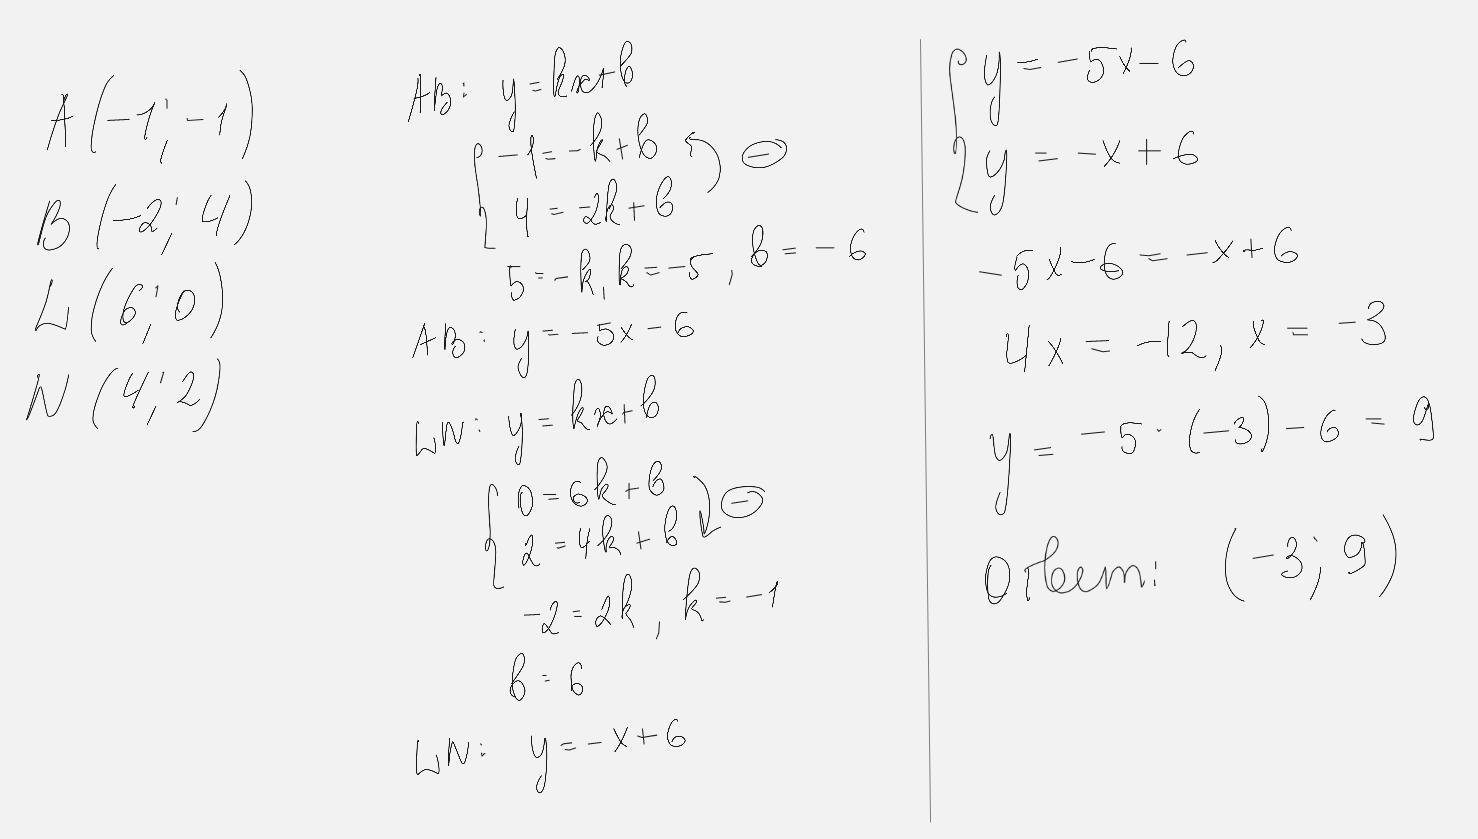 A(-1; -1)
B(-2; 4)
L(6; 0)
N(4; 2)
AB: y=kx+b
-1=-k+b
4=-2k+b
5=-k, k=-5, b=-6
AB: y=-5x-6
LN: y=kx+b
0=6k+b
2=4k+b
-2=2k, k=-1
b=6
LN: y=-x+6
y=-5x-6
y=-x+6
-5x-6=-x+6
4x=-12, x=-3
y=-5·(-3)-6=9
Ответ: (-3; 9)